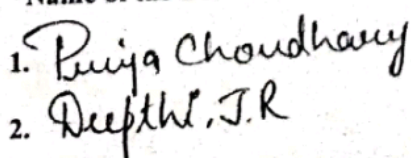 1. Priya Choudhary
2. Deepthi. J.R